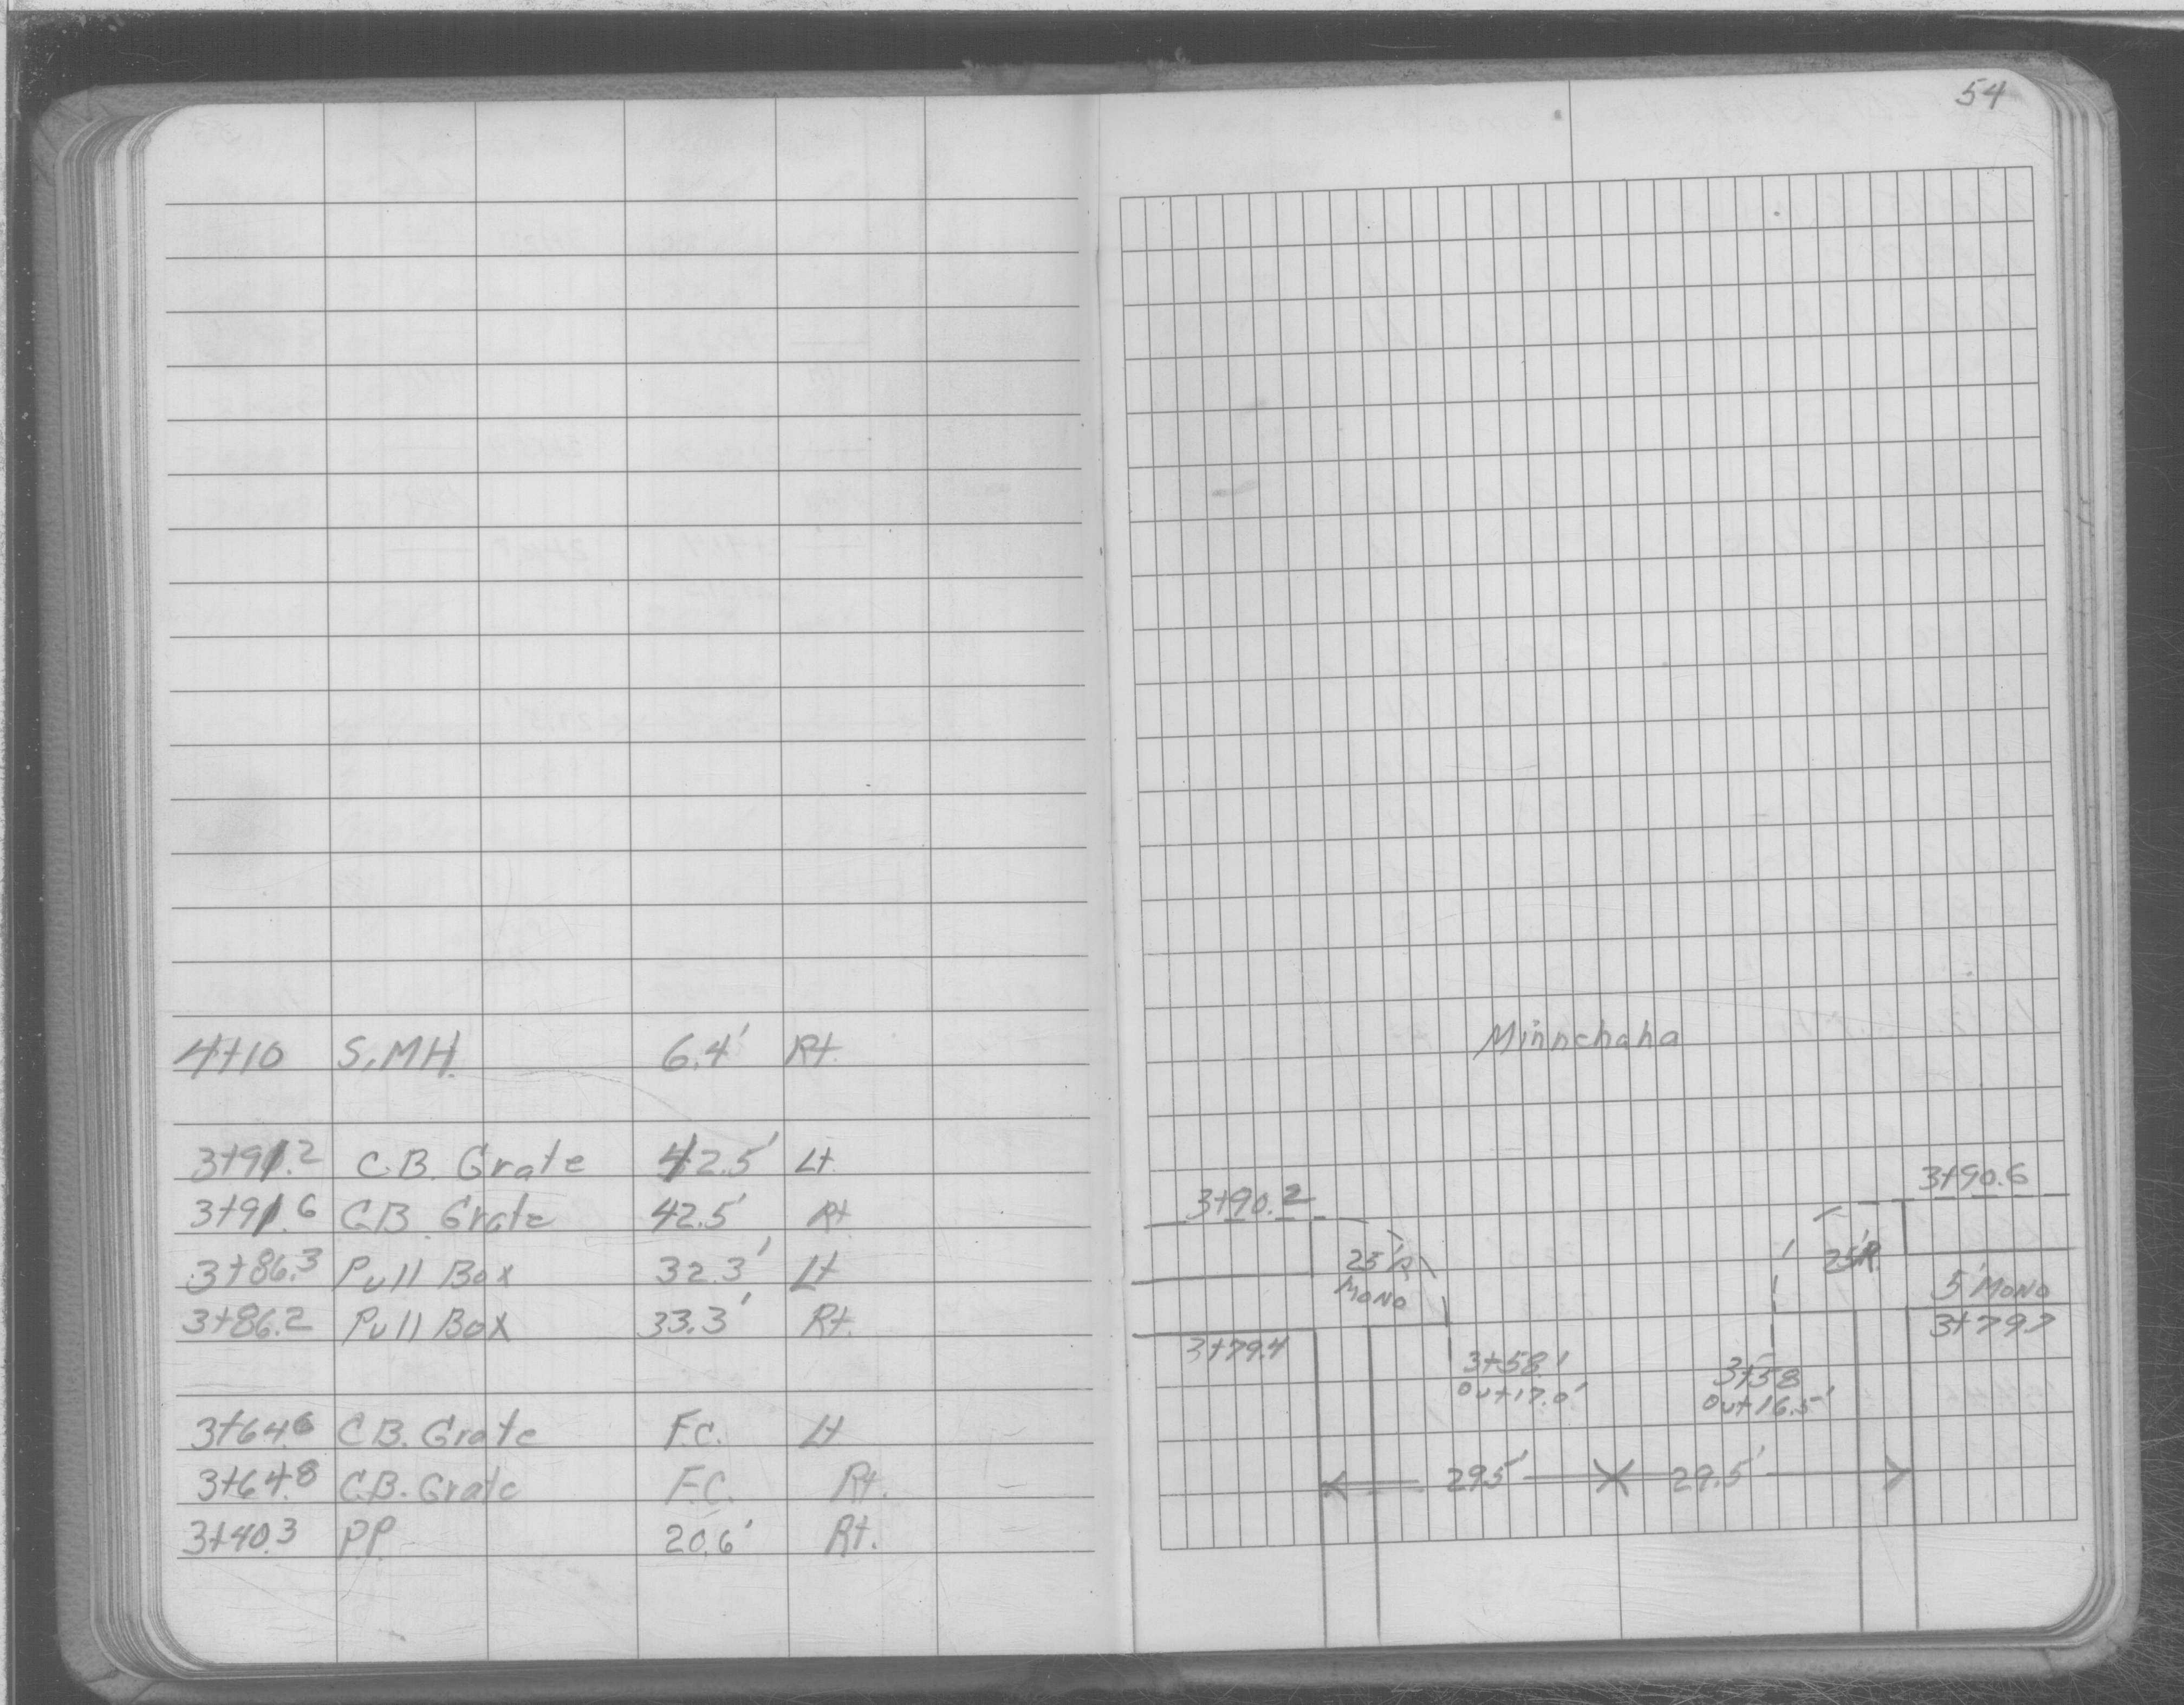 54
4+10 S.MH. 6.4' Rt.
3+91.2 C.B. Grate 42.5' Lt.
3+91.6 C.B. Grate 42.5' Rt
3+86.3 Pull Box 32.3' Lt
3+86.2 Pull Box 33.3' Rt.
3+64.6 C.B. Grate F.C. Lt
3+64.8 C.B. Grate F.C. Rt.
3+40.3 P.P. 20.6' Rt.
Minnehaha
3+90.2
3+90.6
25'R
MONO
25'R.
5' MONO
3+79.4
3+79.7
3+58'
Out 17.0'
3+58
Out 16.5'
29.5'
29.5'